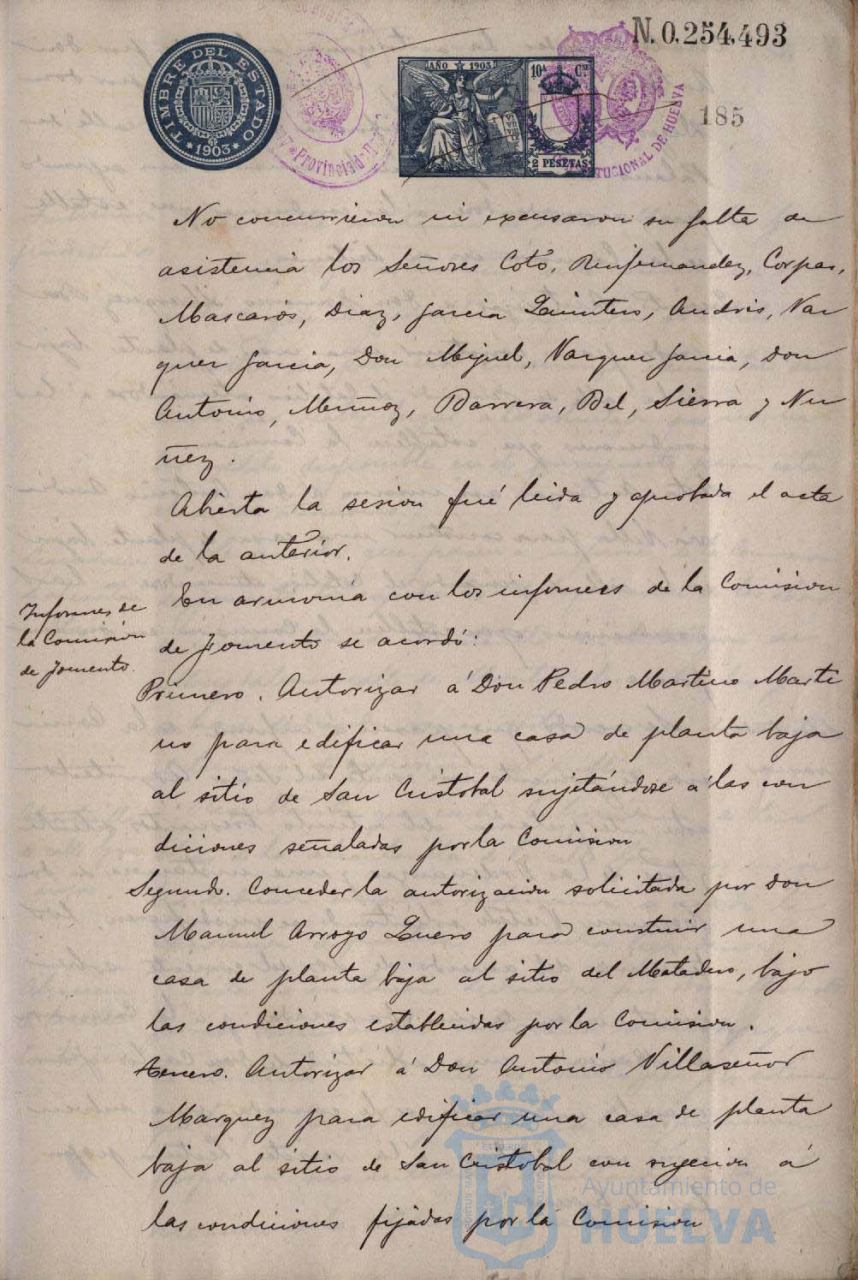 N. 0.254,493
TIMBRE DEL ESTADO
* 1903 *
Provincial
AÑO 1903
10ª Cª
2 PESETAS
TUCIONAL DE HUELVA
185
No concurrieron ni excusaron su falta de
asistencia los Señores Coto, Corpas,
Mascarós, Diaz, Garcia Quintero, Andrés, Vaz
quez Garcia, Don Miguel, Vazquez Garcia, Don
Antonio, Muñoz, Barrera, Bel, Sierra y Nu
ñez.
Abierta la sesion fué leida y aprobada el acta
de la anterior.
Informes de
la Comisión
de Fomento.
En armonia con los informes de la Comision
de Fomento se acordó:
Primero. Autorizar á Don Pedro Martino Marti
no para edificar una casa de planta baja
al sitio de San Cristobal sujetándose á las con
diciones señaladas por la Comision
Segundo. Conceder la autorizacion solicitada por Don
Manuel Arroyo para construir una
casa de planta baja al sitio del Matadero, bajo
las condiciones establecidas por la Comision.
Tercero. Autorizar á Don Antonio Villaseñor
Marquez para edificar una casa de planta
baja al sitio de San Cristobal con sugecion á
las condiciones fijadas por la Comision
Ayuntamiento de
HUELVA